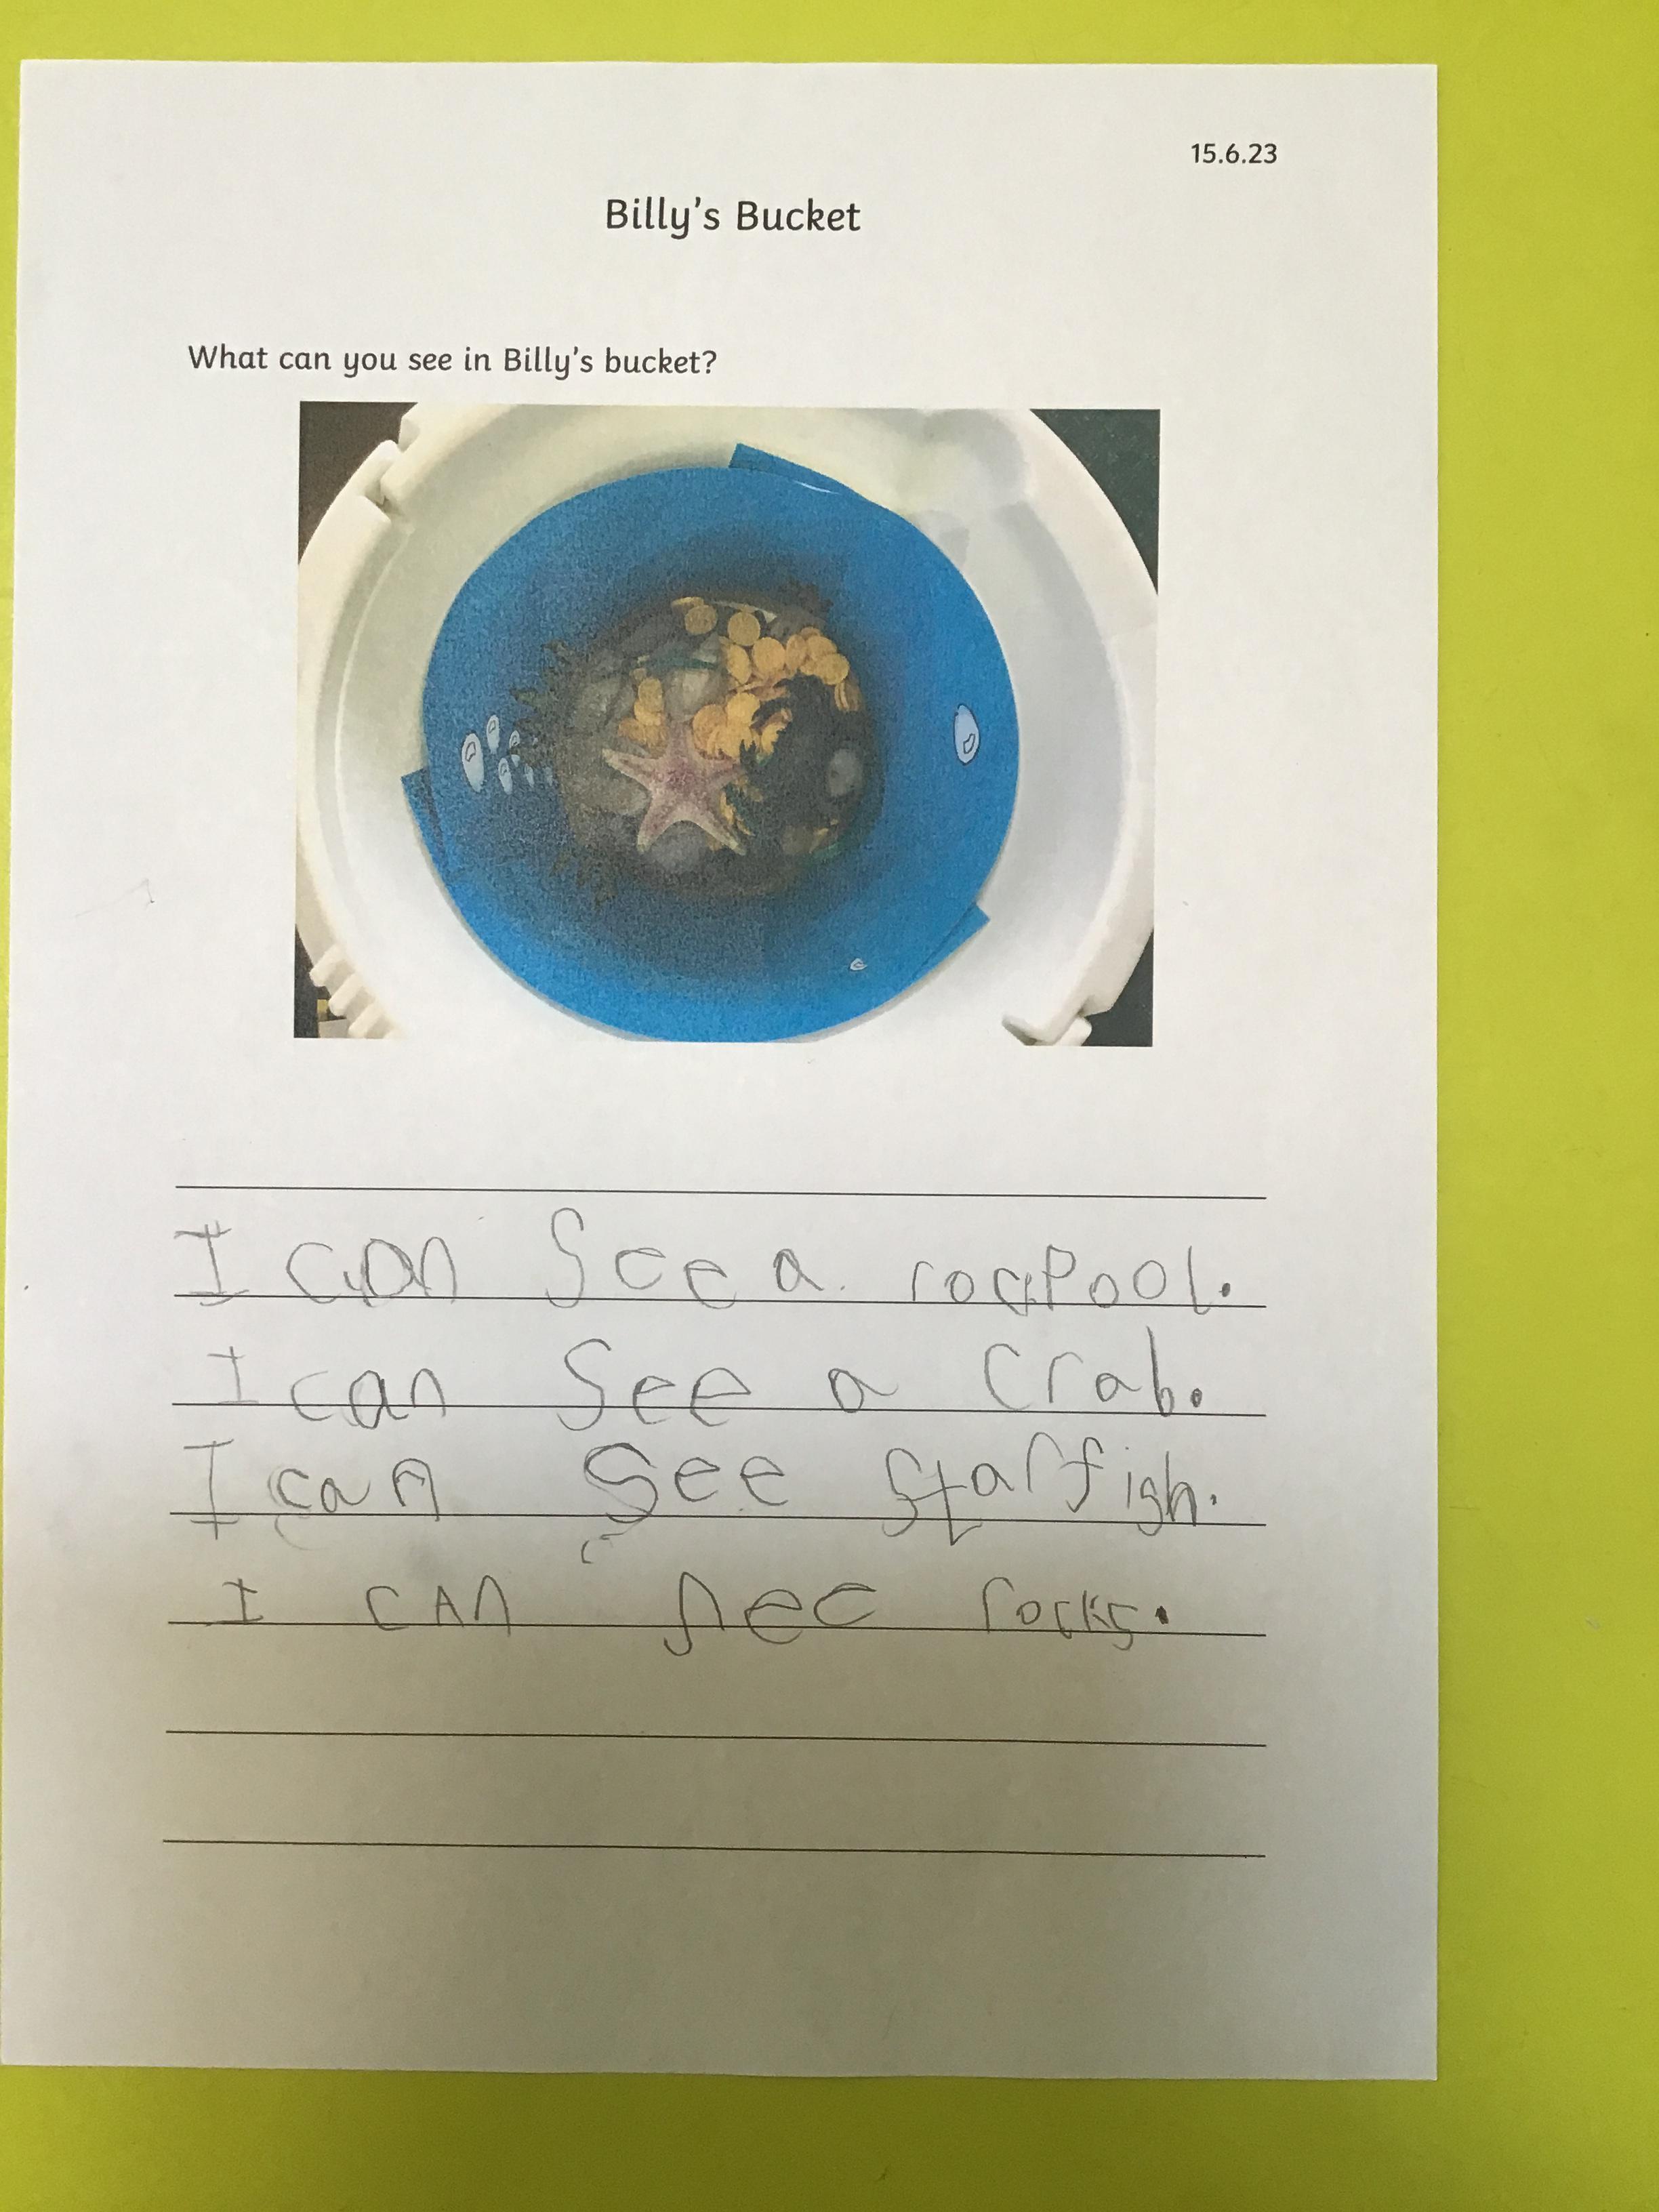 15.6.23
Billy's Bucket
What can you see in Billy's bucket?
I can See a rocpool.
I can See a crab.
I can See starfish.
I can see rocks.